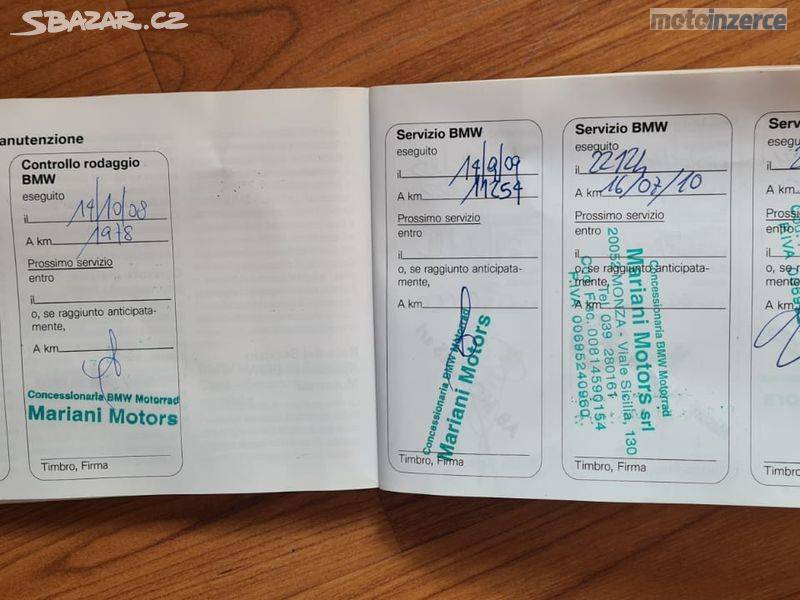 SBAZAR.CZ
motoinzerce
anutenzione
Controllo rodaggio
BMW
eseguito
il 14/10/08
A km 1978
Prossimo servizio
entro
il
o, se raggiunto anticipata-
mente,
A km
Concessionaria BMW Motorrad
Mariani Motors
Timbro, Firma
Servizio BMW
eseguito
il 14/9/09
A km 11254
Prossimo servizio
entro
il
o, se raggiunto anticipata-
mente,
A km
Concessionaria BMW Motorrad
Mariani Motors
Timbro, Firma
Servizio BMW
eseguito
il 22124
A km 16/07/10
Prossimo servizio
entro
il
o, se raggiunto anticipata-
mente,
A km
Concessionaria BMW Motorrad
Mariani Motors srl
20052 MONZA - Viale Sicilia, 130
Tel. 039 280161
Cod. Fisc. 00814590154
P.IVA 00695240960
Timbro, Firma
Serv
eseguito
il
A km
Prossimo
entro
il
o, se
mente,
A km
Timbro